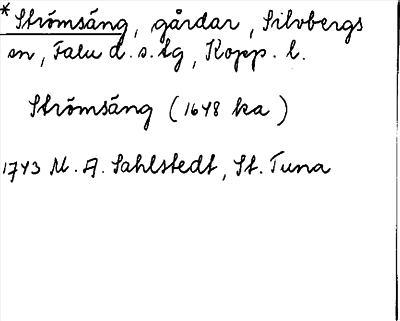 * Strömsäng, gårdar, Silvbergs
sn, Falu d. s. tg, Kopp. l.
Strömsäng (1648 ka)
1743 M. A. Sahlstedt, St. Tuna